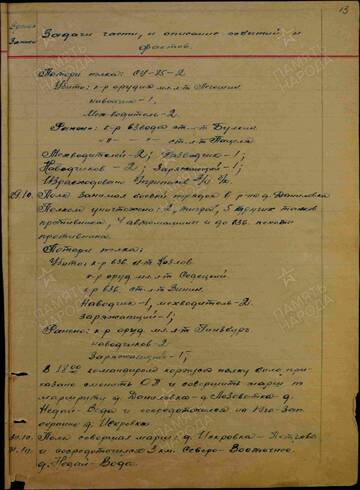 13
Время
Задачи части, и описание событий и
фактов.
Потери полка: СУ-85-2
Убито: к-р орудия мл.л-т
наводчик-1,
мех-водитель-2
Ранено: к-р взвода ст.л-т Булкин
-"- -"- ст.л-т
Механводителей-2; Наводчик-1;
Наводчиков-2; Заряжающий-1;
Израсходовано
29.10. Полк занимал боевой порядок в р-не д. Даниловка
Полком уничтожено: 2 тигра, 5 других танков
противника, 4 автомашины и до взв. пехоты
противника.
Потери полка:
Убито: к-р взв. л-т Козлов
к-р оруд. мл.л-т
к-р взв. ст.л-т Зинин
Наводчик-1, мехводитель-2
заряжающий-1;
Ранено: к-р оруд. мл.л-т Гинзбург
наводчиков-2
Заряжающий-1;
В 18.00 командиром корпуса полку было при-
казано сменить ОП и совершить марш по
маршруту д. Даниловка - д. Лозоватка д.
Недай-Вода и сосредоточился на юго-зап.
окраине д. Искровка
30.10. Полк совершил марш: д. Искровка -
31.10. и сосредоточился 3 км. Северо-Восточнее
д. Недай-Вода.
ПАМЯТЬ
НАРОДА